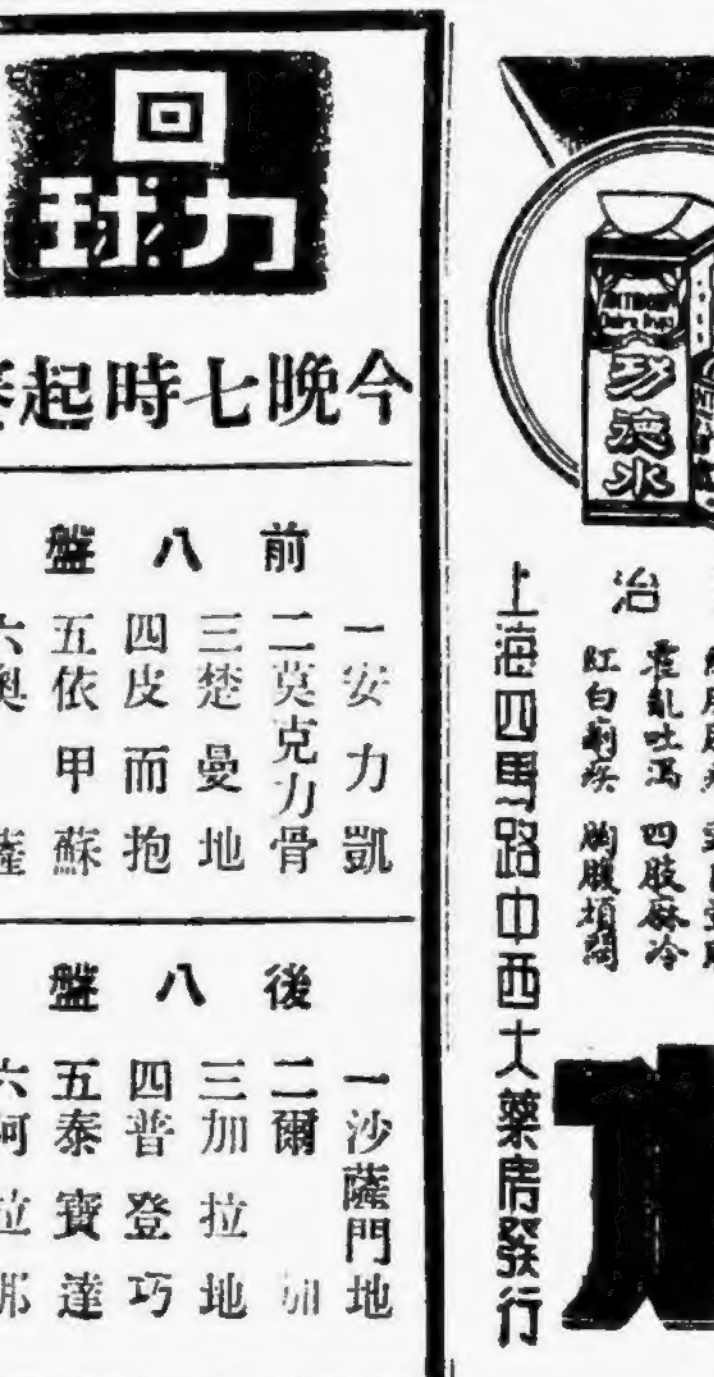 回
力球
今晚七時起
前八盤
一安力凱
二莫克力骨
三楚曼地
四皮而抱
五依甲蘇
六奧 薩
後八盤
一沙薩門地
二爾 加
三加拉地
四普登巧
五泰寶達
六阿拉那
功德水
治
霍亂吐瀉 四肢麻冷
紅白痢疾 胸腹填悶
上海四馬路中西大藥房發行